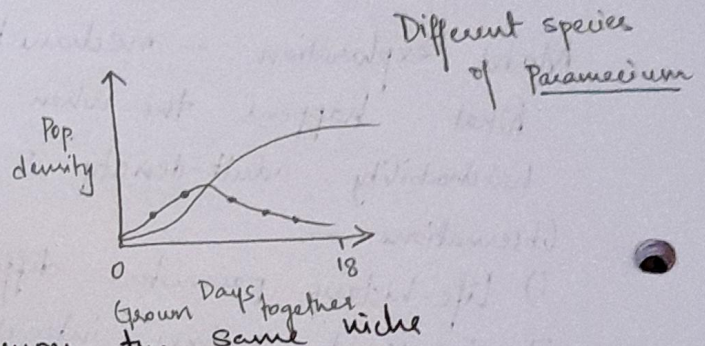 Different species
of Paramecium
Pop.
density
0
18
Days
Grown together
the same niche